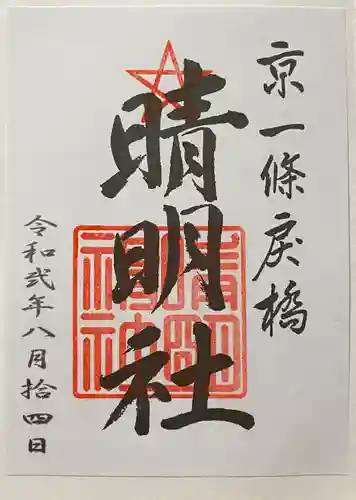 京一條戻橋
晴明社
晴明神社
令和弐年八月拾四日